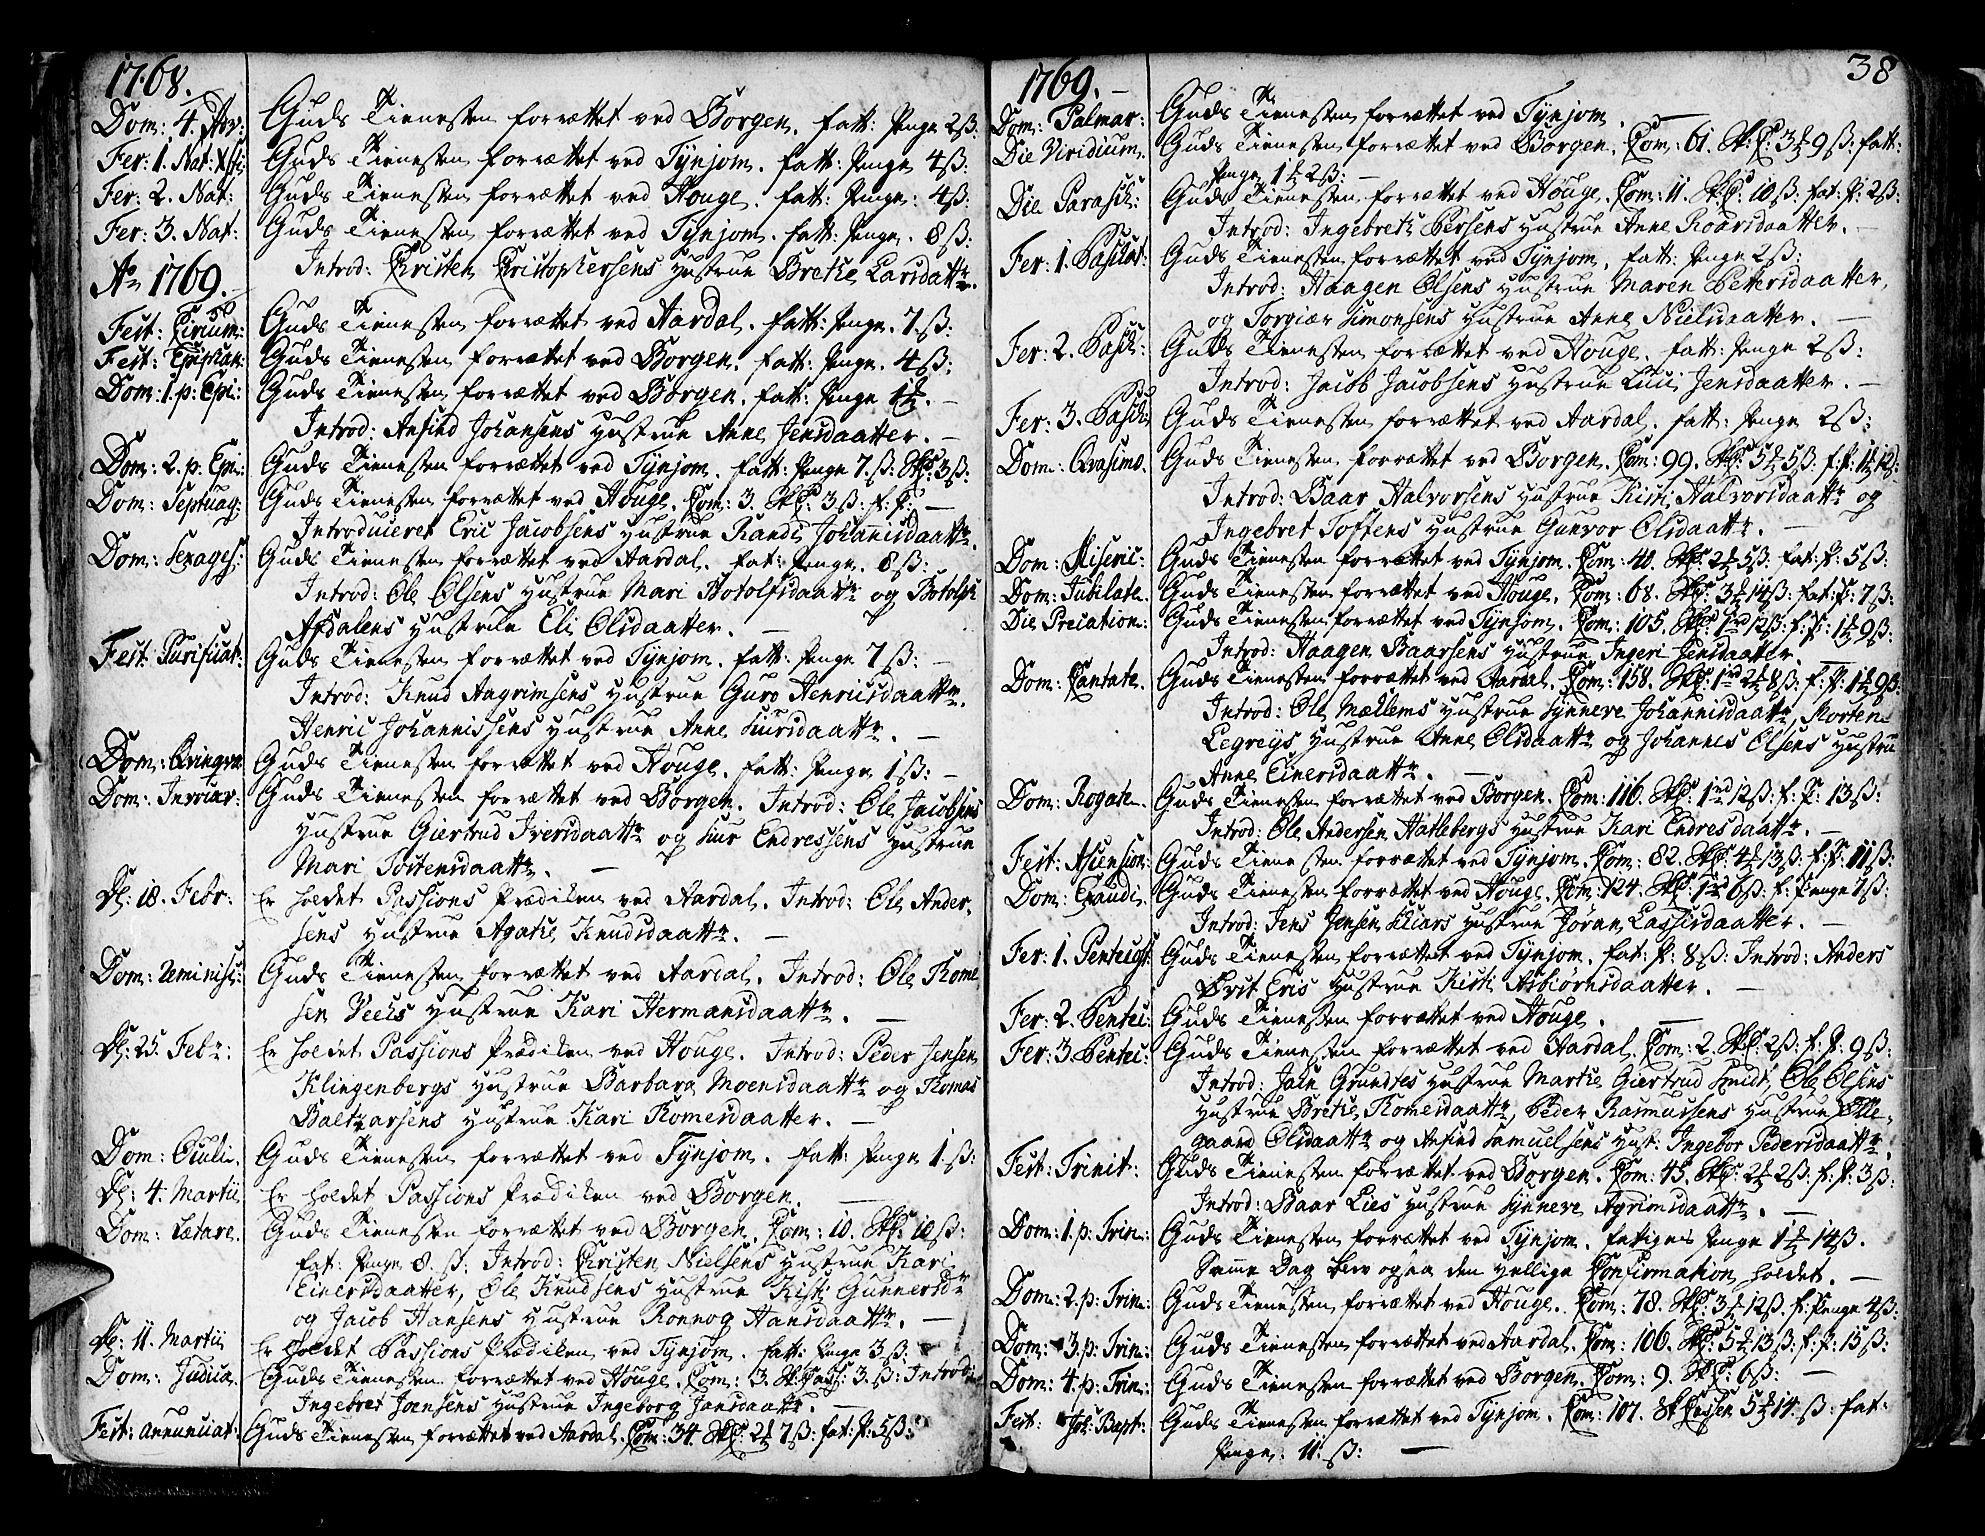 1768.
Dom: 4. Adv: Guds Tienesten forrættet ved Borgen. fatt: Penge 2ß:
Fer: 1. Nat: Xsti: Guds Tienesten forrættet ved Tynjom. fatt: Penge 4ß:
Fer: 2. Nat: Guds Tienesten forrættet ved Houge. fatt: Penge: 4ß:
Fer: 3. Nat: Guds Tienesten forrættet ved Tynjom. fatt: Penge. 8ß:
Introd: Christen Christophersens Hustrue Brethe Larsdattr.
Ao 1769.
Fest: Circum: Guds Tienesten forrættet ved Aardal. fatt: Penge. 7.ß:
Fest: Epiphan: Guds Tienesten forrættet ved Borgen. fatt: Penge. 4ß:
Dom: 1. p: Epi: Guds Tienesten forrættet ved Borgen. fatt: Penge
Introd: Ansind Johansens Hustrue Anne Jensdaatter. —
Dom: 2. p. Epi: Guds Tienesten forrættet ved Tynjom. fatt: Penge 7.ß: 3ß:
Dom: Septuag: Guds Tienesten forrættet ved Houge. Com: 3. 3ß: f: P: —
Introduceret Eric Jacobsens Hustrue Randi Johannisdaattr.
Dom: Sexages: Guds Tienesten forrættet ved Aardal. fat: Penge. 8ß:
Introd: Ole Olsens Hustrue Mari Botolfsdaattr og Botolph
Afdalens Hustrue Eli Olsdaatter. —
Fest: Purificat: Guds Tienesten forrættet ved Tynjom. fatt: Penge 7ß: —
Introd: Knud Aagrimsens Hustrue Guro Henricsdaattr.
Henric Johannissens Hustrue Anne Siursdaattr. —
Dom: Qvingva Guds Tienesten forrættet ved Houge. fatt: Penge 1ß: —
Dom: Invocav: Guds Tienesten forrættet ved Borgen. Introd: Ole Jacobsens
Hustrue Giertrud Iversdaattr og Siur Endressens Hustrue
Mari Tostensdaattr. —
Dl: 18. Febr: Er holdet Passions Prædiken ved Aardal. Introd: Ole Ander-
sens Hustrue Agathe Knudsdaattr. —
Dom: Reminisc: Guds Tienesten forrættet ved Aardal. Introd: Ole Thome
sen Hustrue Kari Hermansdaattr. —
Dl: 25. Febr: Er holdet Passions Prædiken ved Houge. Introd: Peder Jensen
Klingenbergs Hustrue Barbara Moensdaattr og Thomas
Baltzarsens Hustrue Kari Thomesdaatter. —
Dom: Oculi. Guds Tienesten forrættet ved Tynjom. fatt: Penge 1.ß:
Dl: 4. Martii Er holdet Passions Prædiken ved Borgen. —
Dom: Lætare. Guds Tienesten forrættet ved Borgen. Com: 10. 10ß:
fat: Penge 8. ß: Introd: Christen Nielsens Hustrue Kari
Einersdaatter, Ole Knudsens Hustrue Kisti Gunnersdr
og Jacob Hansens Hustrue Ronnog Hansdaattr. —
Dl: 11. Martii Er holdet Passions Prædiken ved Tynjom. fatt: Penge 3ß:
Dom: Judica. Guds Tienesten forrættet ved Houge. Com: 3. 3.ß: Introd:
Ingebret Joensens Hustrue Ingeborg Jansdaattr. —
Fest: Annunciat: Guds Tienesten forrættet ved Aardal. Com: 34. 7ß: fat: P: 5ß:
1769. — 38
Dom: Palmar: Guds Tienesten forrættet ved Tynjom. —
Die Viridium. Guds Tienesten forrættet ved Borgen. Com: 61. 9ß: fatt:
Penge 2ß: —
Die Parasch: Guds Tienesten forrættet ved Houge. Com: 11. 10ß: fat: P: 2ß:
Introd: Ingebreth Persens Hustrue Anne Roarsdaatter. —
Fer: 1. Paschat: Guds Tienesten forrættet ved Tynjom. fatt: Penge 2ß:
Introd: Haagen Olsens Hustrue Maren Pettersdaatter,
og Torgiær Simonsens Hustrue Anne Nielsdaatter. —
Fer: 2. Pasch: Guds Tienesten forrættet ved Houge. fatt: Penge 2ß:
Introd: Jacob Jacobsens Hustrue Luci Jensdaatter. —
Fer: 3. Pasch: Guds Tienesten forrættet ved Aardal. fatt: Penge 2ß:
Dom: Qvasimo. Guds Tienesten forrættet ved Borgen. Com: 99. 5ß: f: P:
Introd: Baar Halvorsens Hustrue Kisti Halvorsdaattr og
Ingebret Toffens Hustrue Gunvor Olsdaattr. —
Dom: Miseric: Guds Tienesten forrættet ved Tynjom. Com: 40. 5ß: fat: P: 5ß:
Dom: Jubilate. Guds Tienesten forrættet ved Houge. Com: 68. 14ß: fat: P: 7ß:
Die Precation: Guds Tienesten forrættet ved Tynjom. Com: 105. 12ß: f: P: 9ß:
Introd: Haagen Baarsens Hustrue Ingeri Jensdaatter. —
Dom: Cantate. Guds Tienesten forrættet ved Aardal. Com: 158. 8ß: f: P: 9ß:
Introd: Ole Mællems Hustrue Synneve Johannisdaattr, Morten
Legreijs Hustrue Anne Olsdaattr og Johannes Olsens Hustrue
Anne Einersdaattr. —
Dom: Rogate. Guds Tienesten forrættet ved Borgen. Com: 116. 12ß: f: P: 13ß:
Introd: Ole Andersen Hatlebergs Hustrue Kari Endresdaattr. —
Fest: Ascension: Guds Tienesten forrættet ved Tynjom. Com: 82. 13ß: f: P: 11ß:
Dom: Exaudi. Guds Tienesten forrættet ved Houge. Com: 124. 6ß: f: Penge 1ß:
Introd: Jens Jensen Hustrue Jøran Lassesdaatter. —
Fer: 1. Pentecost: Guds Tienesten forrættet ved Tynjom. fat: P: 8ß: Introd: Anders
Hustrue Kisti Asbiørnsdaatter. —
Fer: 2. Pentec: Guds Tienesten forrættet ved Houge. —
Fer: 3. Pentec: Guds Tienesten forrættet ved Aardal. Com: 2. 2ß: f: P: 9ß:
Introd: Hustrue Marthe Giertrud Smidt, Ole Olsens
Hustrue Brethe Thomesdaattr, Peder Rasmussens Hustrue Olle-
gaard Olsdaattr og Ansind Samuelsens Hust: Ingebor Pedersdaattr.
Fest: Trinit: Guds Tienesten forrættet ved Borgen. Com: 45. 2ß: f: P: 3ß:
Introd: Baar Lies Hustrue Synneve Agrimsdaattr. —
Dom: 1. p: Trin: Guds Tienesten forrættet ved Tynjom. fattiges Penge 14ß.
Samme Dag blev ogsaa den Hellige Confirmation holdet. —
Dom: 2. p: Trin: Guds Tienesten forrættet ved Houge. Com: 78. 12ß. f: Penge 4ß:
Dom: 3. p: Trin: Guds Tienesten forrættet ved Aardal. Com: 106. 13ß: f: P: 15ß:
Dom: 4. p: Trin: Guds Tienesten forrættet ved Borgen. Com: 9. 6ß: —
Fest: Joh: Bapt: Guds Tienesten forrættet ved Tynjom. Com: 107. 14.ß: fat:
Penge: 11.ß: —